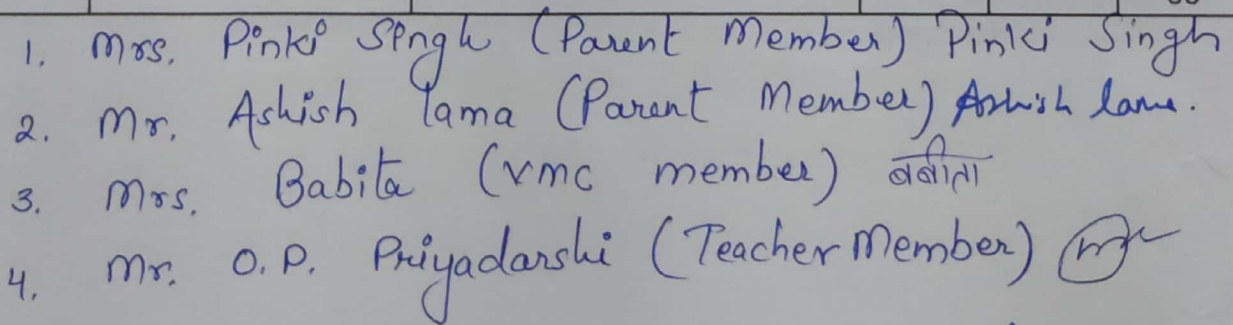 1. Mrs. Pinki Singh (Parent Member) Pinki Singh
2. Mr. Ashish lama (Parent Member) Ashish lama.
3. Mrs. Babita (VMC member) बबीता
4. Mr. O.P. Priyadarshi (Teacher Member)